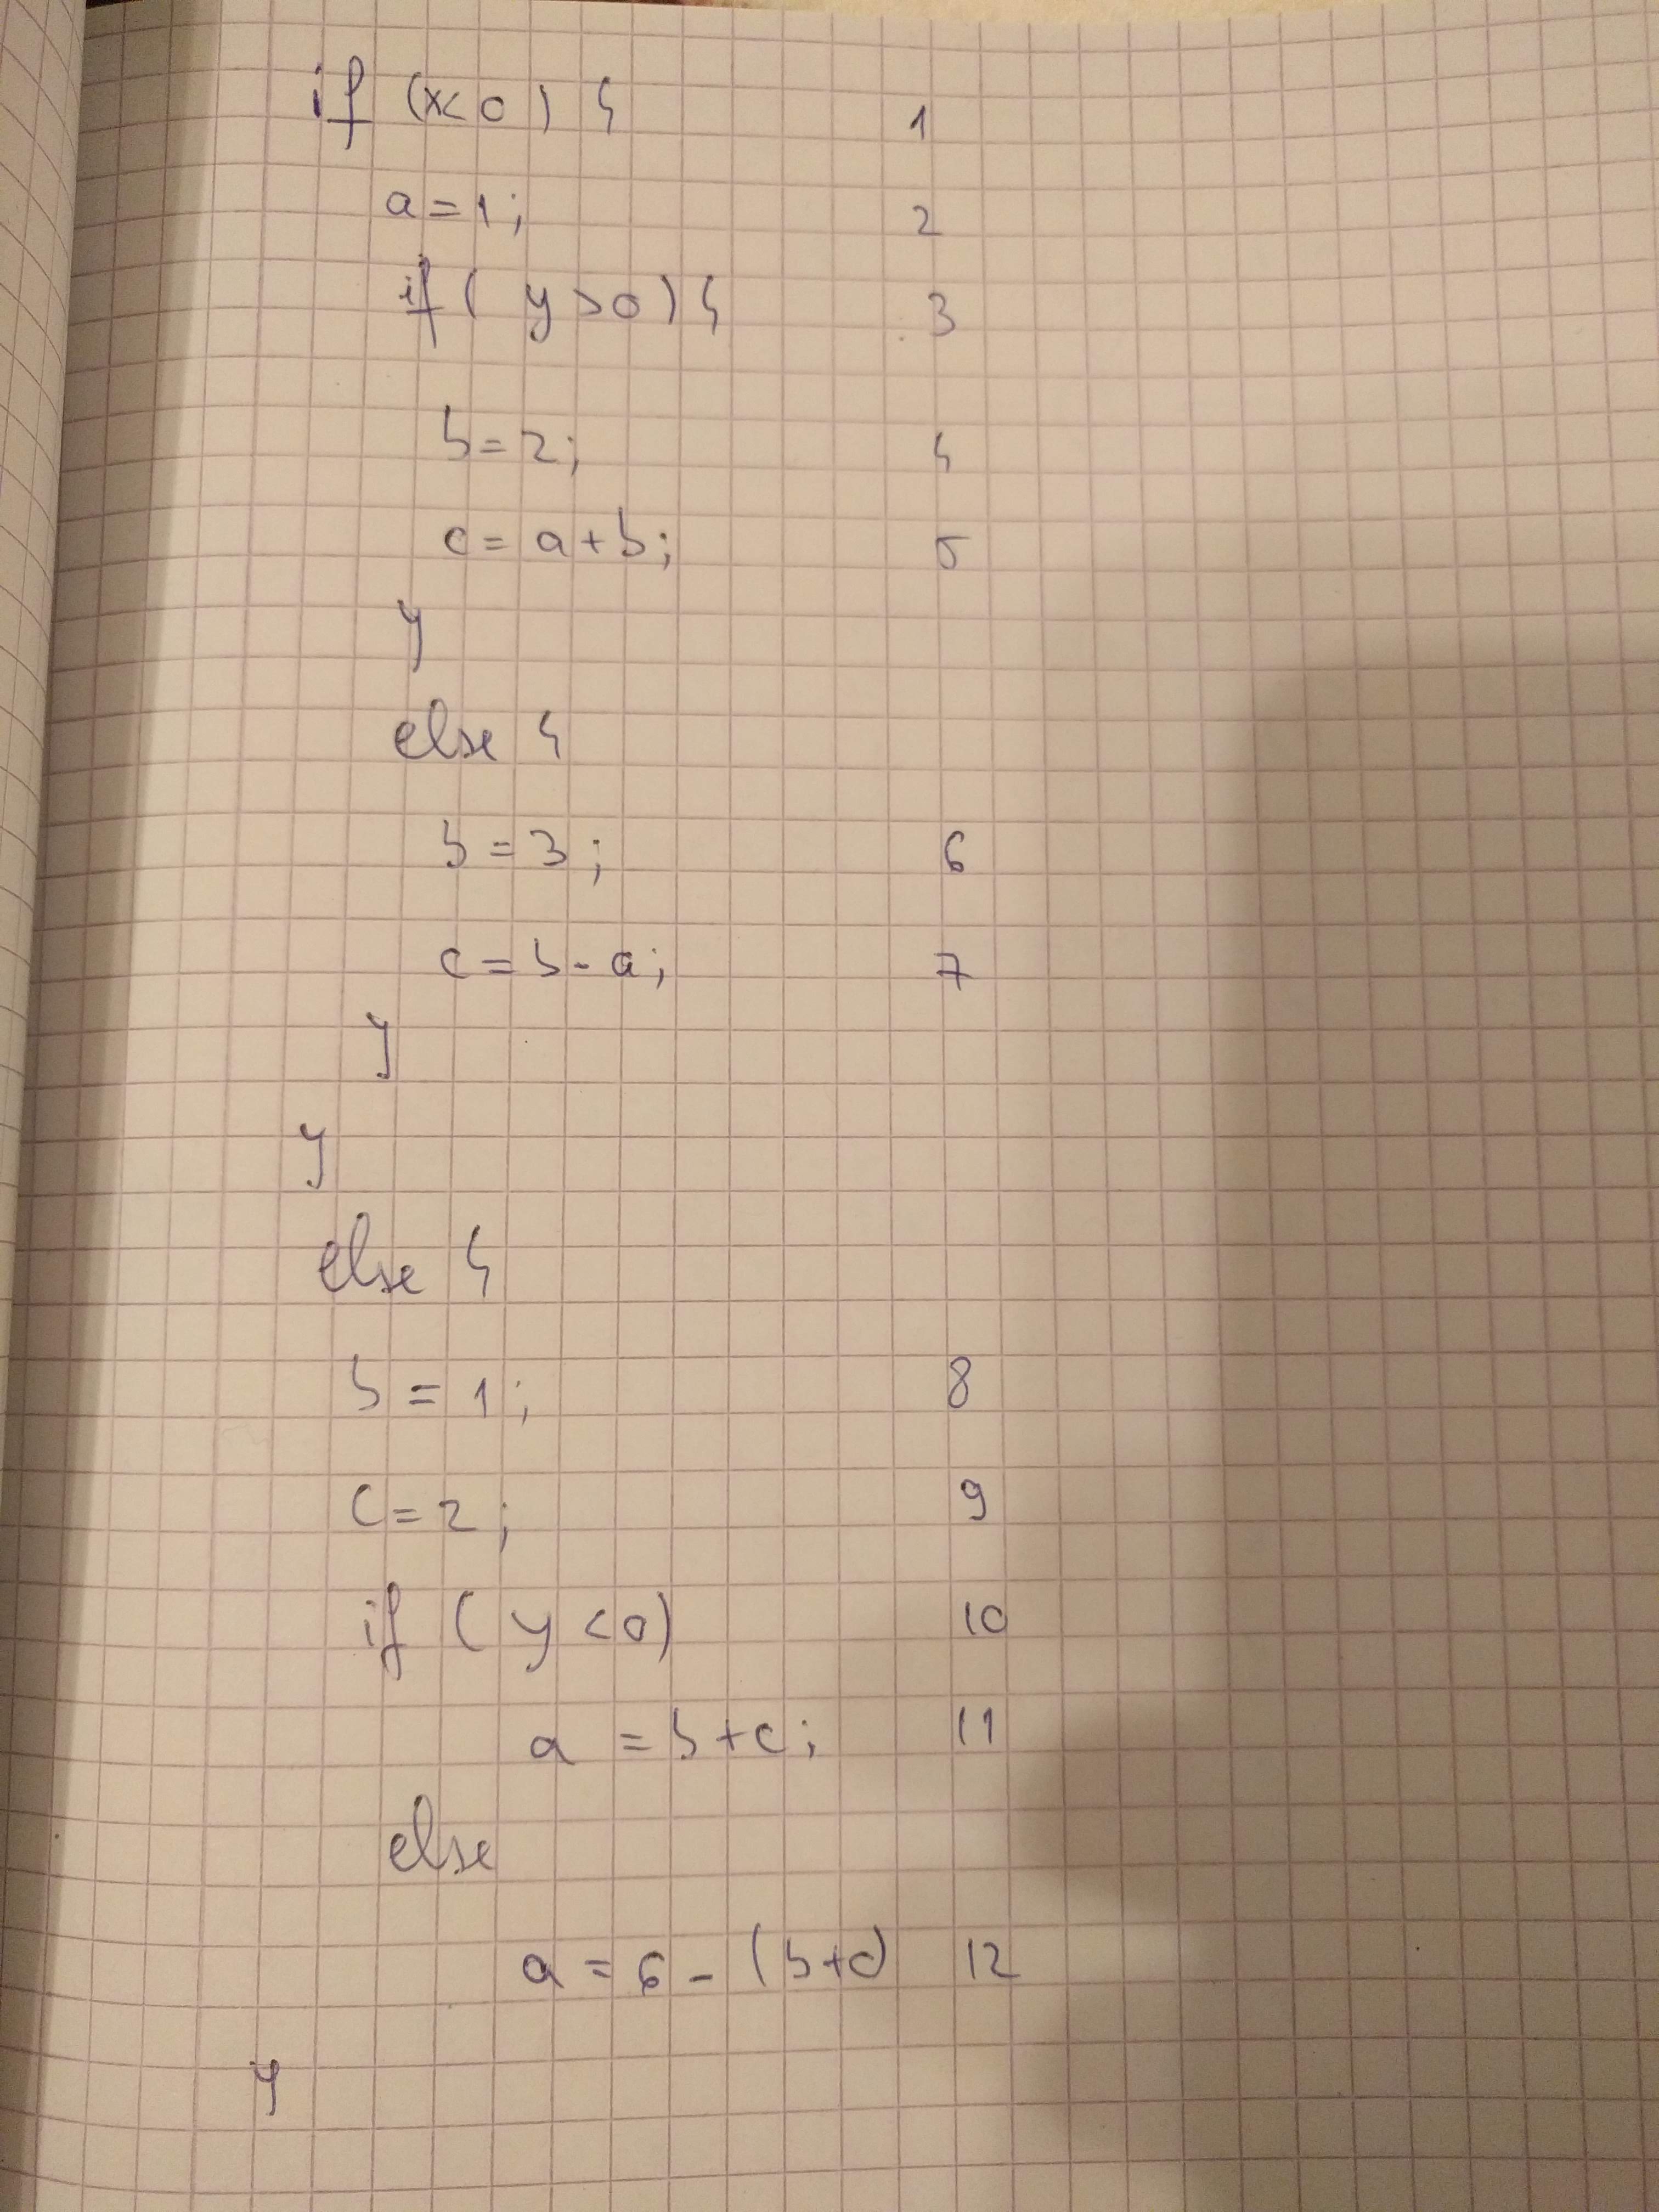 if (x<0) { 1
a=1; 2
if ( y>0) { 3
b=2; 4
c= a+b; 5
}
else {
b=3; 6
c=b-a; 7
}
}
else {
b=1; 8
c=2; 9
if ( y<0) 10
a =b+c; 11
else
a=6-(b+c) 12
}